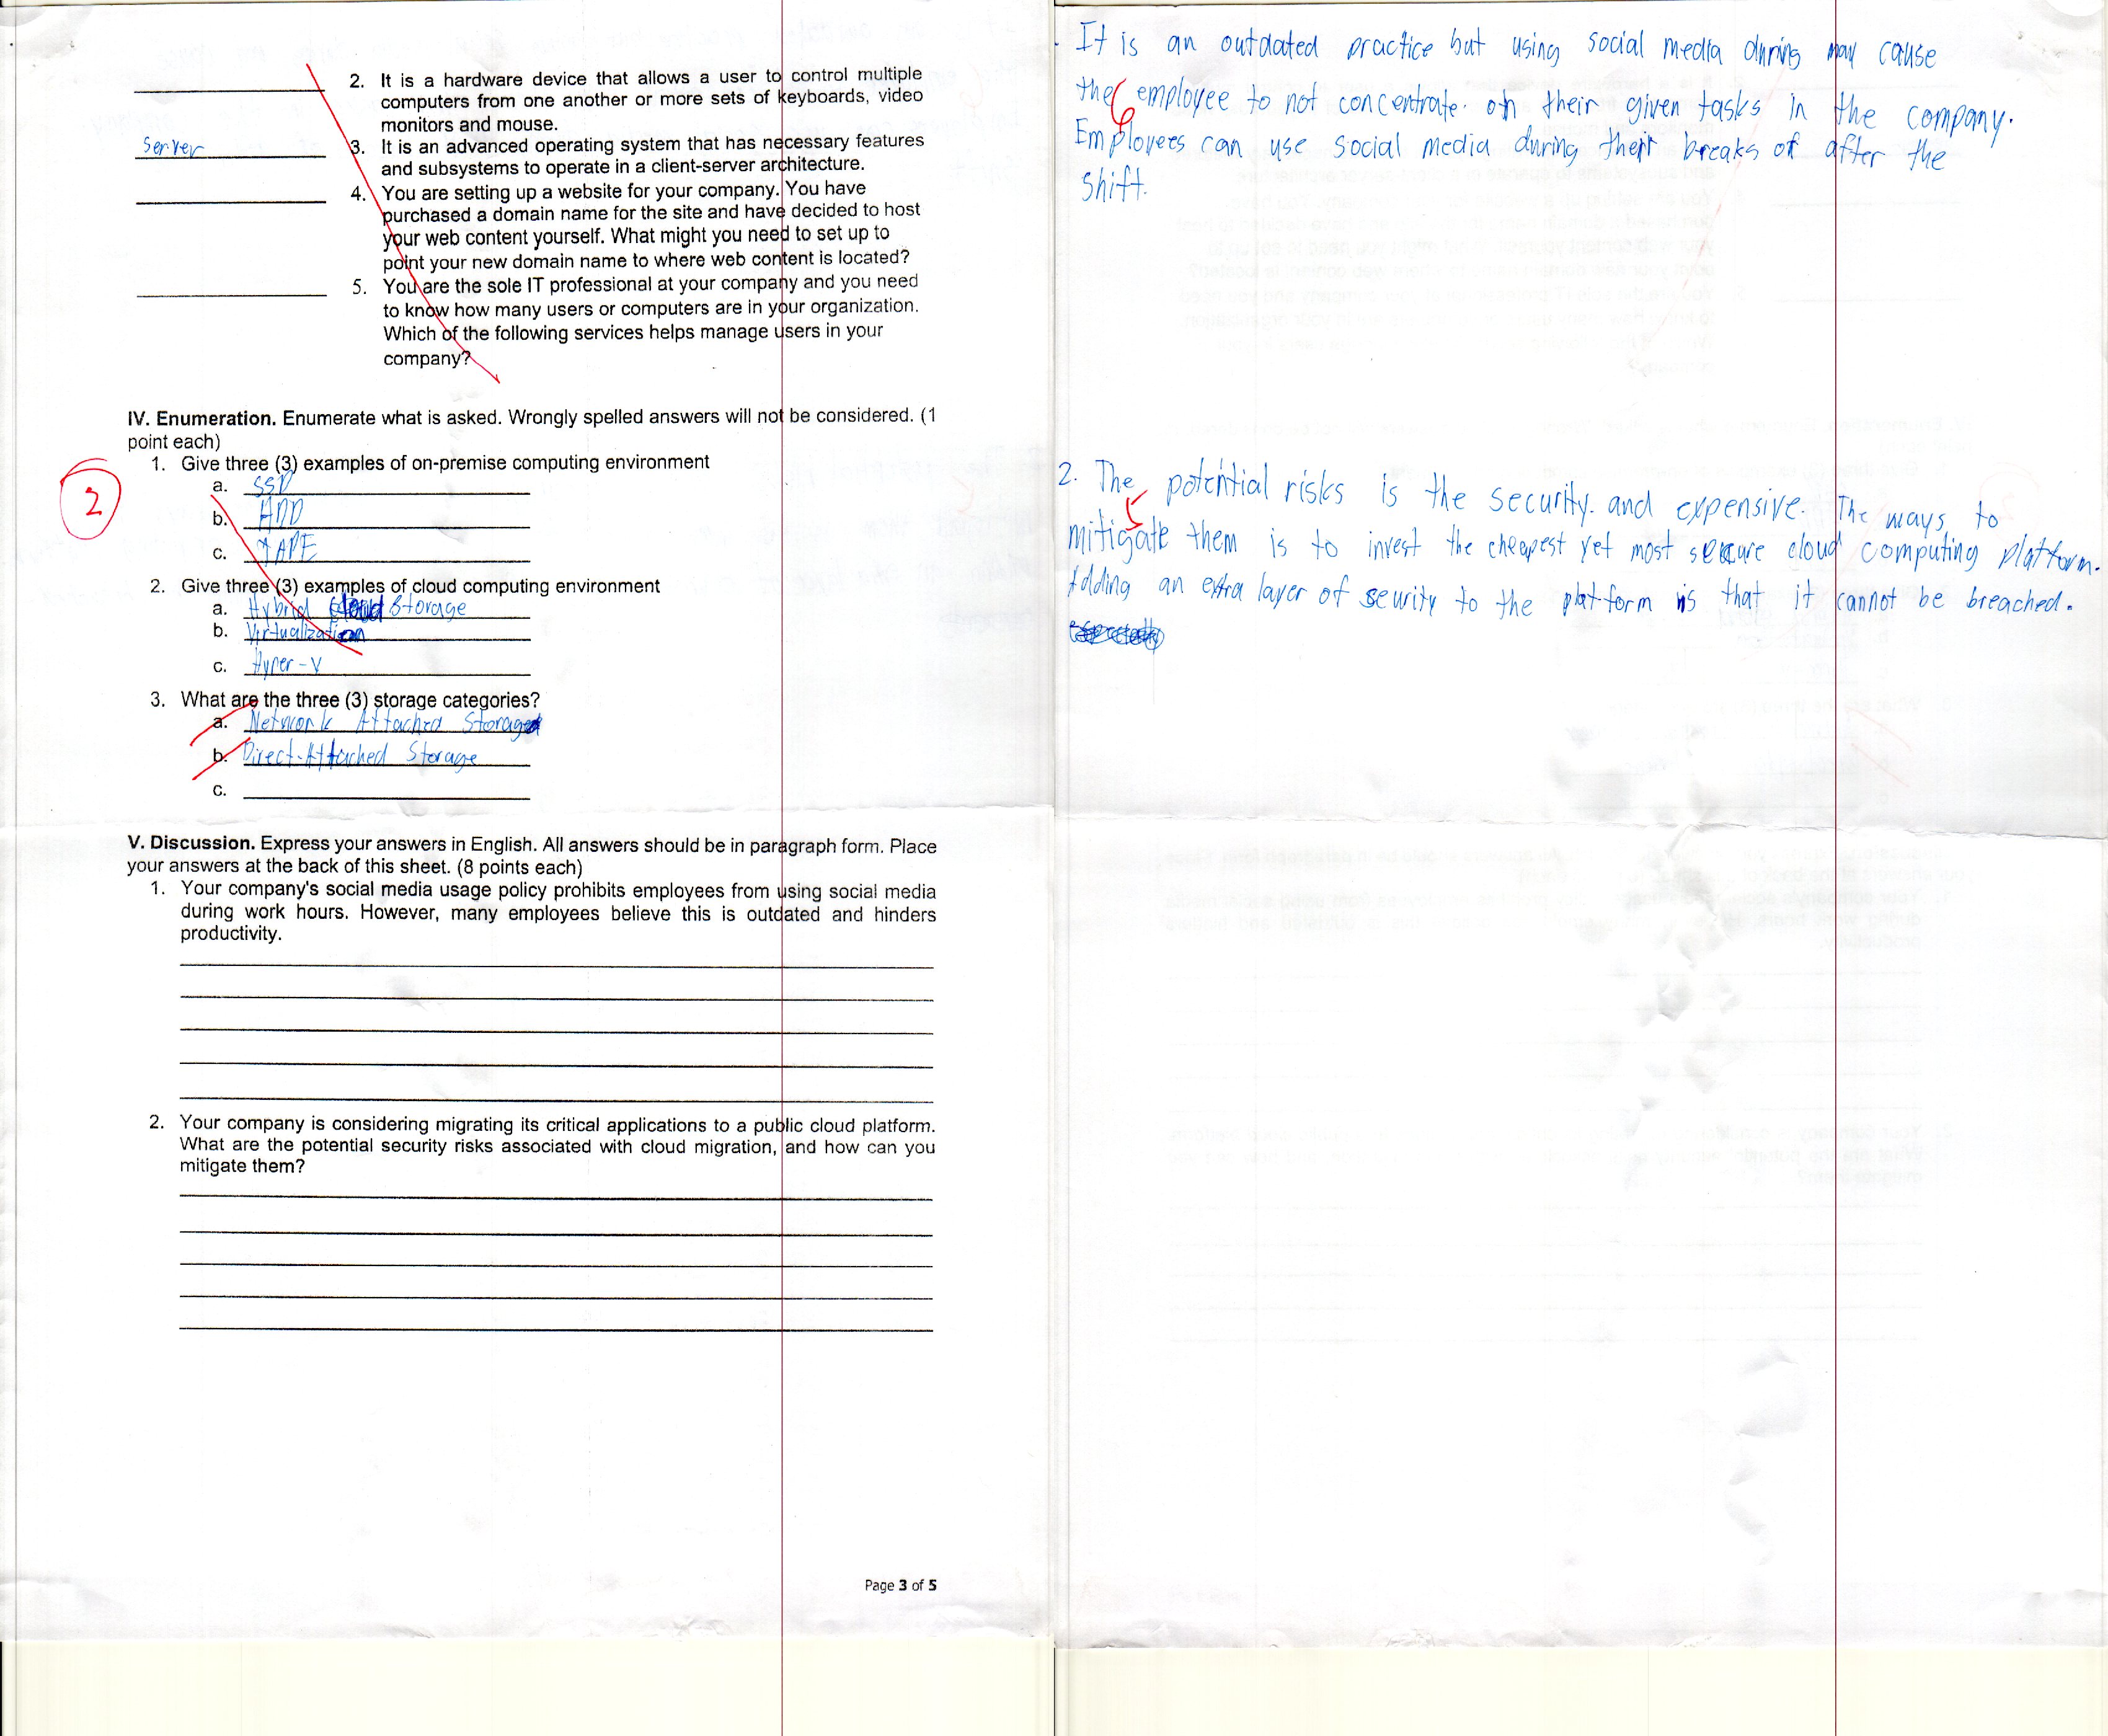 2. It is a hardware device that allows a user to control multiple
computers from one another or more sets of keyboards, video
monitors and mouse.
Server 3. It is an advanced operating system that has necessary features
and subsystems to operate in a client-server architecture.
4. You are setting up a website for your company. You have
purchased a domain name for the site and have decided to host
your web content yourself. What might you need to set up to
point your new domain name to where web content is located?
5. You are the sole IT professional at your company and you need
to know how many users or computers are in your organization.
Which of the following services helps manage users in your
company?
IV. Enumeration. Enumerate what is asked. Wrongly spelled answers will not be considered. (1
point each)
1. Give three (3) examples of on-premise computing environment
a. SSD
2
b. HDD
c. TAPE
2. Give three (3) examples of cloud computing environment
a. Hybrid cloud Storage
b. Virtualization
c. Hyper-V
3. What are the three (3) storage categories?
a. Network Attached Storage
b. Direct-Attached Storage
c.
V. Discussion. Express your answers in English. All answers should be in paragraph form. Place
your answers at the back of this sheet. (8 points each)
1. Your company's social media usage policy prohibits employees from using social media
during work hours. However, many employees believe this is outdated and hinders
productivity.
2. Your company is considering migrating its critical applications to a public cloud platform.
What are the potential security risks associated with cloud migration, and how can you
mitigate them?
Page 3 of 5
It is an outdated practice but using social media during may cause
the employee to not concentrate. on their given tasks in the company.
6
Employees can use social media during their breaks or after the
shift.
2. The potential risks is the security. and expensive. The ways to
5
mitigate them is to invest the cheapest yet most secure cloud computing platform.
Adding an extra layer of seurity to the platform is that it cannot be breached.